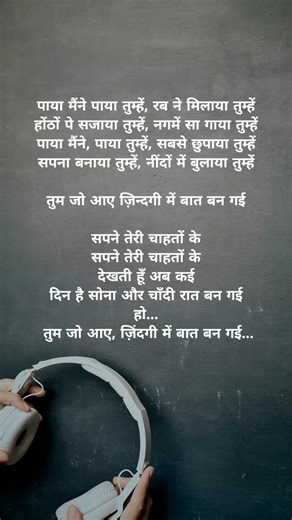 पाया मैंने पाया तुम्हें, रब ने मिलाया तुम्हें
होंठों पे सजाया तुम्हें, नगमें सा गाया तुम्हें
पाया मैंने, पाया तुम्हें, सबसे छुपाया तुम्हें
सपना बनाया तुम्हें, नींदों में बुलाया तुम्हें
तुम जो आए ज़िन्दगी में बात बन गई
सपने तेरी चाहतों के
सपने तेरी चाहतों के
देखती हूँ अब कई
दिन है सोना और चाँदी रात बन गई
हो...
तुम जो आए, ज़िंदगी में बात बन गई...